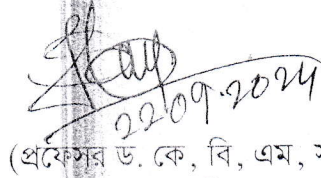 22.09.2024
(প্রফেসর ড. কে, বি, এম,